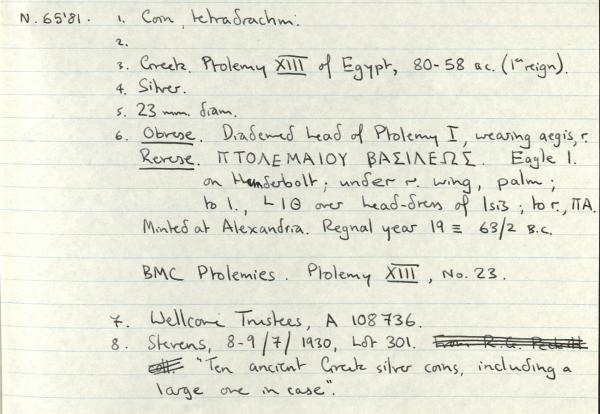 N. 65'81. 1. Coin, tetradrachm.
2.
3. Greek. Ptolemy XIII of Egypt, 80-58 B.C. (1st reign).
4. Silver.
5. 23 mm. diam.
6. Obverse. Diademed head of Ptolemy I, wearing aegis, r.
Reverse. ΠΤΟΛΕΜΑΙΟΥ ΒΑΣΙΛΕΩΣ. Eagle l.
on thunderbolt; under r. wing, palm;
to l., LΙΘ over head-dress of Isis; to r., ΠΑ.
Minted at Alexandria. Regnal year 19 ≡ 63/2 B.C.
BMC Ptolemies. Ptolemy XIII, No. 23.
7. Wellcome Trustees, A 108736.
8. Stevens, 8-9/7/1930, Lot 301. From R.G.
"Ten ancient Greek silver coins, including a
large one in case".